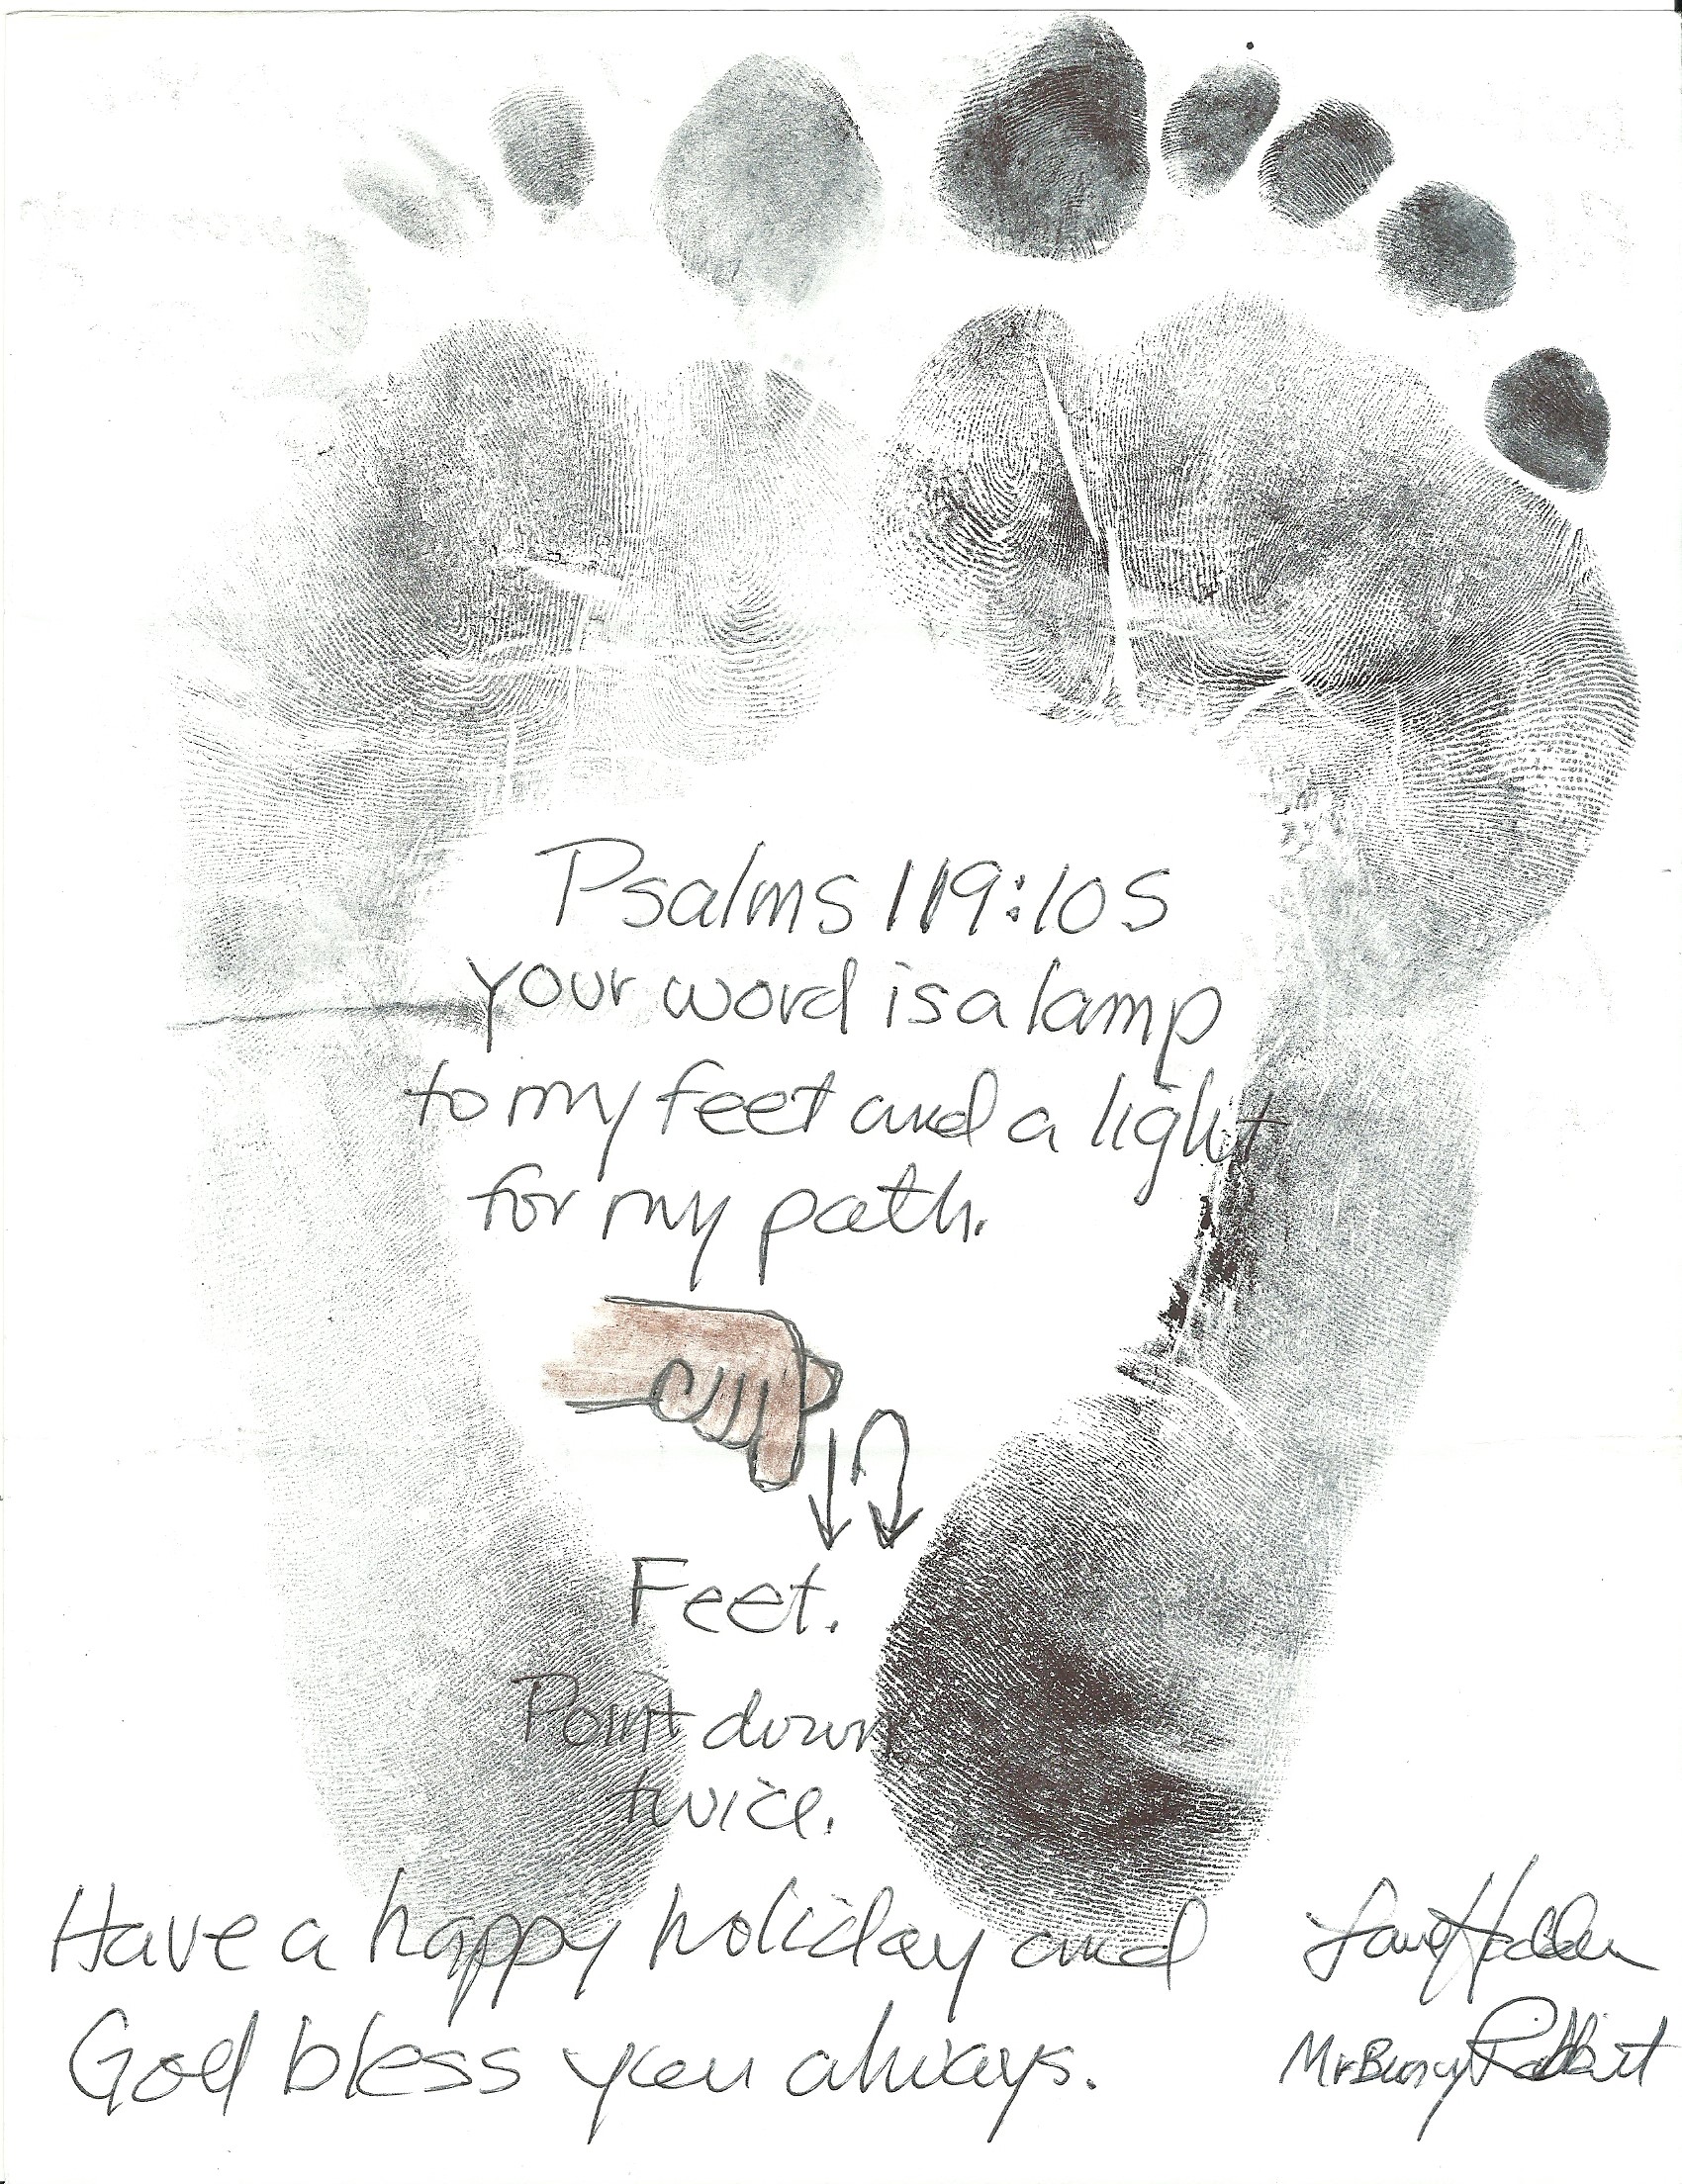 Psalms 119:105
your word is a lamp
to my feet and a light
for my path.
Feet.
Point down
twice.
Have a happy holiday and
God bless you always.
Mr Bunny Rabbit